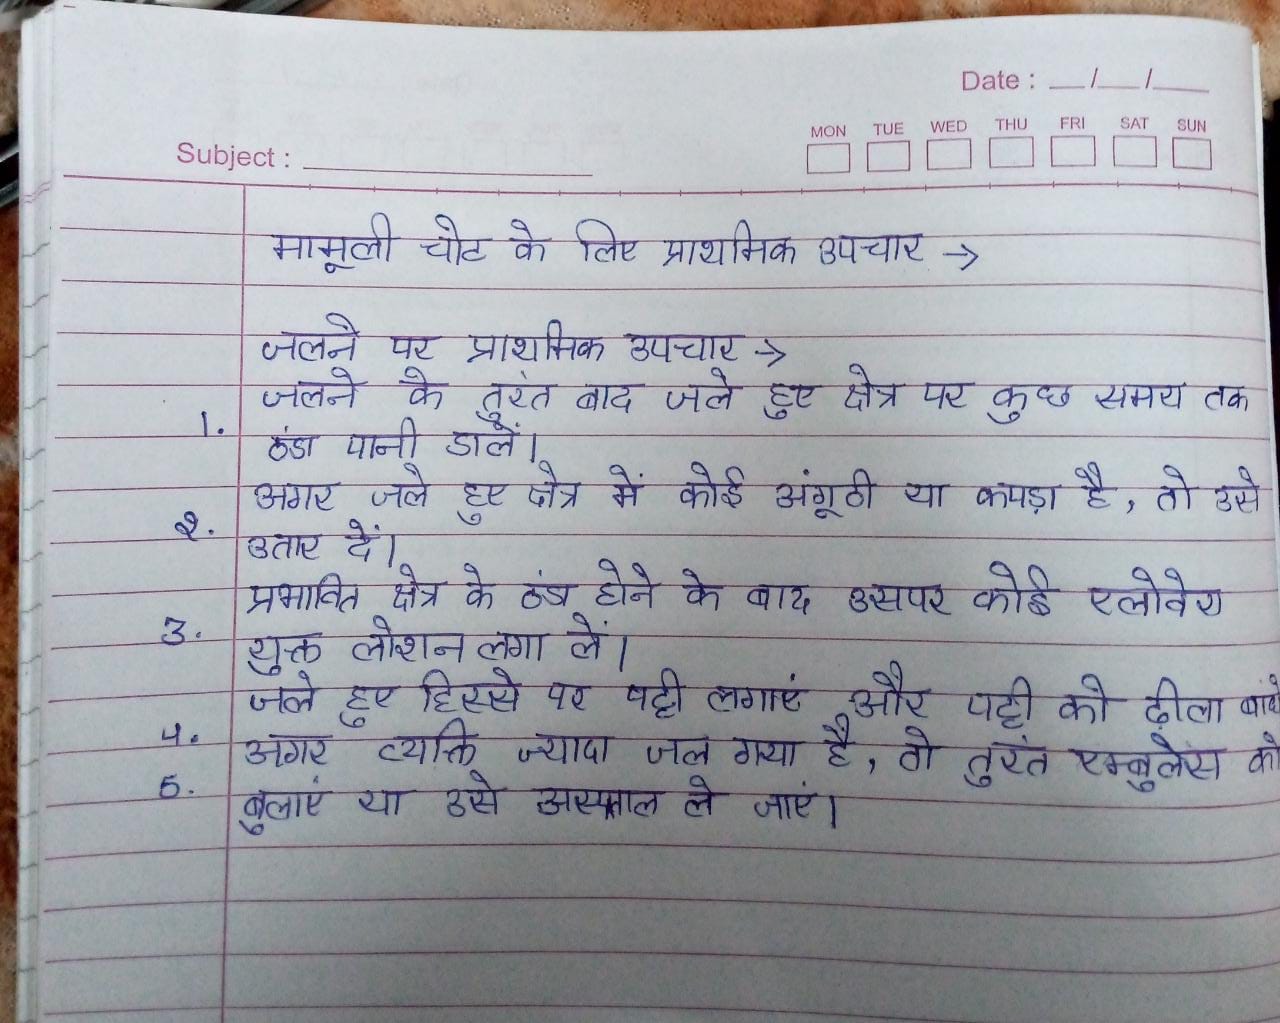 Date : __/__/__
MON TUE WED THU FRI SAT SUN
Subject : ____________
मामूली चोट के लिए प्राथमिक उपचार →
जलने पर प्राथमिक उपचार →
1. जलने के तुरंत बाद जले हुए क्षेत्र पर कुछ समय तक
ठंडा पानी डालें।
2. अगर जले हुए क्षेत्र में कोई अंगूठी या कपड़ा है, तो उसे
उतार दें।
3. प्रभावित क्षेत्र के ठंडा होने के बाद उसपर कोई एलोवेरा
युक्त लोशन लगा लें।
4. जले हुए हिस्से पर पट्टी लगाएं और पट्टी को ढीला बांधे
5. अगर व्यक्ति ज्यादा जल गया है, तो तुरंत एम्बुलेंस को
बुलाएं या उसे अस्पताल ले जाएं।